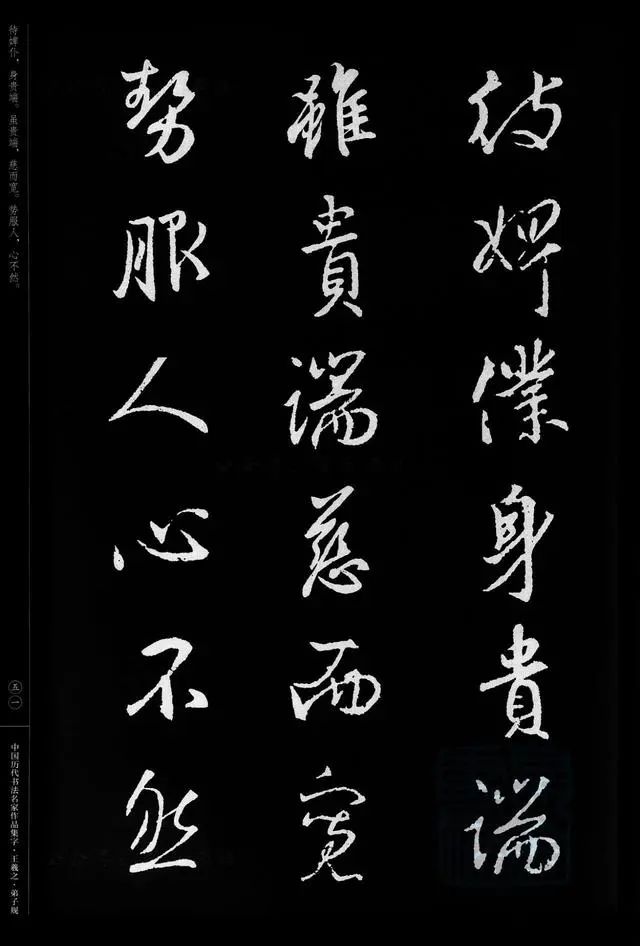 待婢僕身貴端
雖貴端慈而寬
勢服人心不然
待婢仆，身贵端。虽贵端，慈而宽。势服人，心不然。
五一
中国历代书法名家作品集字·王羲之·弟子规